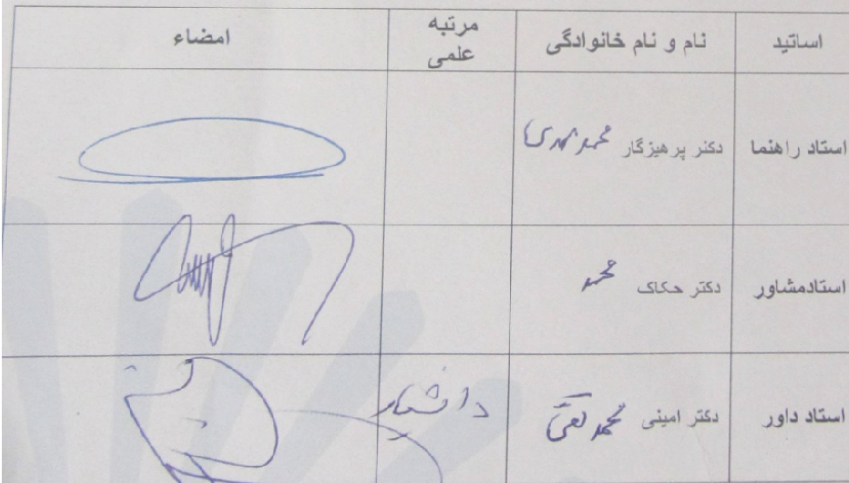 اساتید نام و نام خانوادگی مرتبه علمی امضاء
استاد راهنما دکتر پرهیزگار محمد مهدی
استادمشاور دکتر حکاک محمد
استاد داور دکتر امینی محمد تقی دانشیار